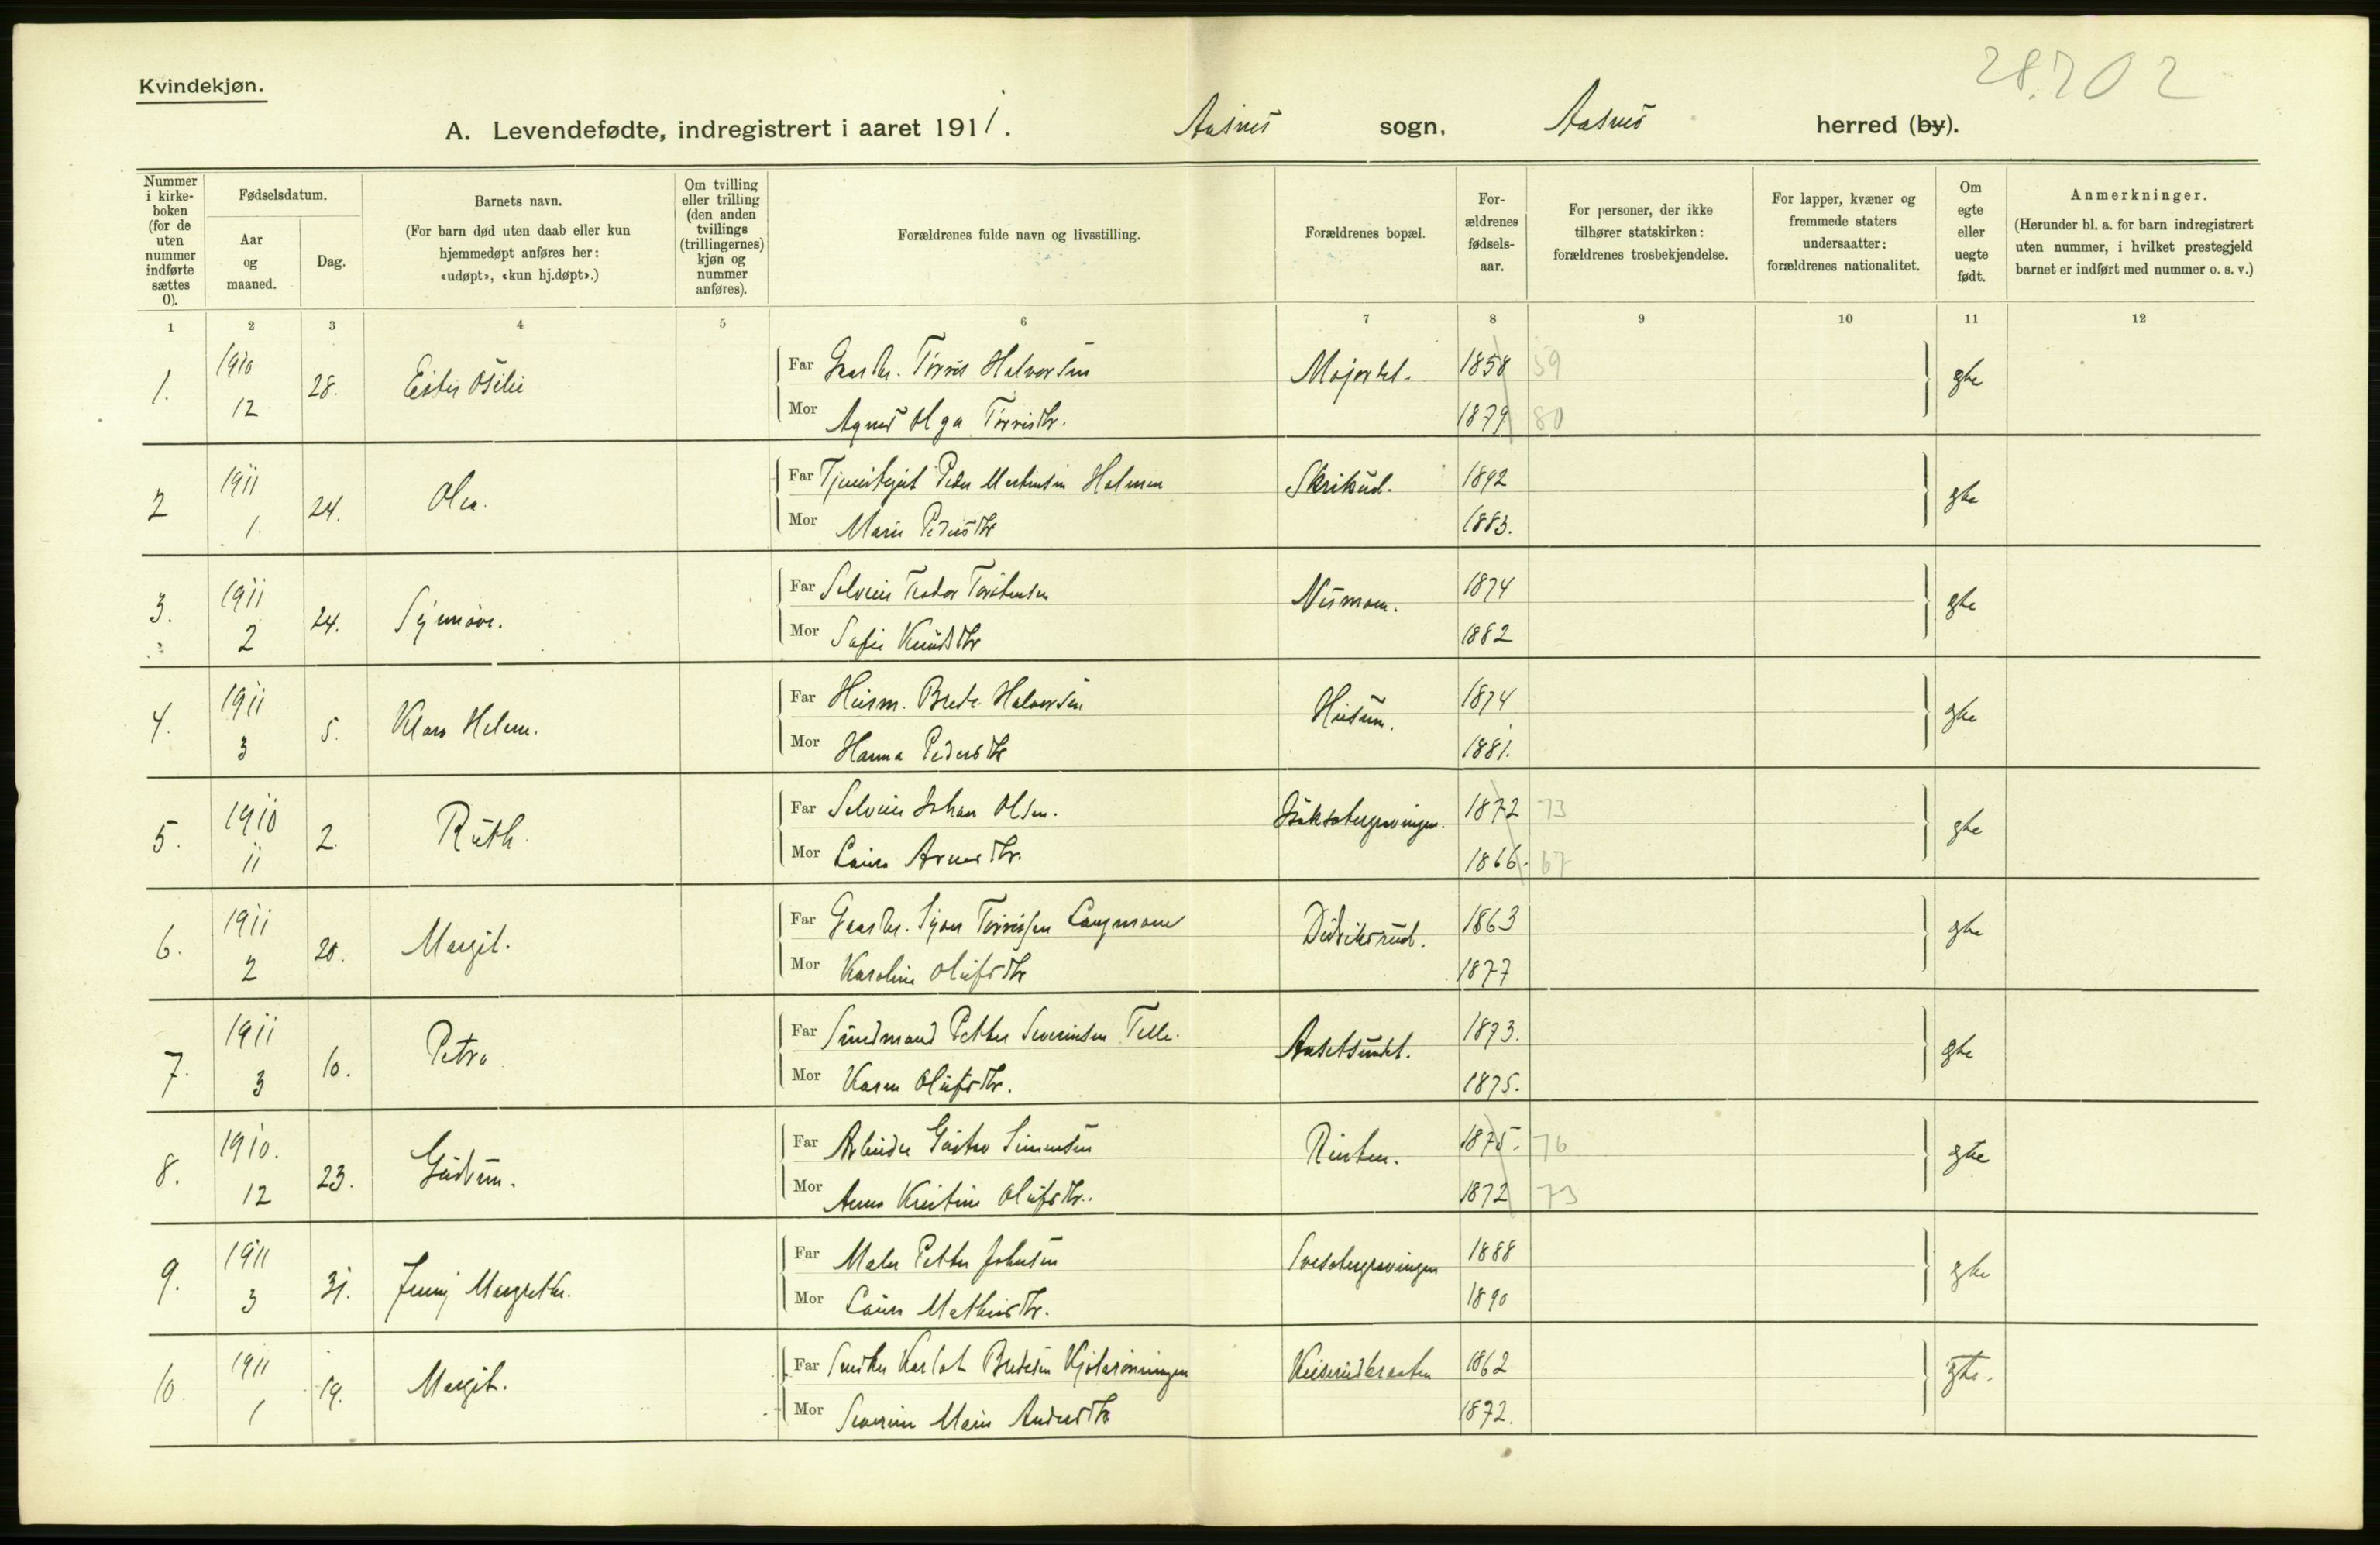 28.202
Kvindekjøn.
A. Levendefødte, indregistrert i aaret 1911. Aasnes sogn, Aasnes herred (by).
Nummer i kirkeboken (for de uten nummer indførte sættes 0).
Fødselsdatum.
Aar og maaned.
Dag.
Barnets navn.
(For barn død uten daab eller kun hjemmedøpt anføres her: «udøpt», «kun hj.døpt».)
Om tvilling eller trilling (den anden tvillings (trillingernes) kjøn og nummer anføres).
Forældrenes fulde navn og livsstilling.
Forældrenes bopæl.
Forældrenes fødselsaar.
For personer, der ikke tilhører statskirken: forældrenes trosbekjendelse.
For lapper, kvæner og fremmede staters undersaatter: forældrenes nationalitet.
Om egte eller uegte født.
Anmerkninger.
(Herunder bl. a. for barn indregistrert uten nummer, i hvilket prestegjeld barnet er indført med nummer o. s. v.)
1 2 3 4 5 6 7 8 9 10 11 12
1. 1910 12 28. Ester Otilie Far Gaardbr. Torris Halvorsen Majorbel. 1858 59 egte
Mor Agnes Olga Torrisdtr. 1879 80
2 1911 1. 24. Olea. Far Tjenestegut Peder Martinsen Holmen Skrikud. 1892 egte
Mor Marie Pedersdtr 1883.
3. 1911 2 24. Synnøve. Far Selveier Teodor Torstensen Nesmoen. 1874 egte
Mor Sofie Knudsdtr 1882
4. 1911 3 5. Klara Helene. Far Husm. Brede Halvorsen Husum. 1874 egte
Mor Hanna Pedersdtr 1881.
5. 1910 11 2. Ruth. Far Selveier Johan Olsen. 1872 73 egte
Mor Laura Arnesdtr. 1866. 67
6. 1911 2 20. Margit. Far Gaardbr. Syver Torrissen Langmoen Didriksrud. 1863 egte
Mor Karoline Olufsdtr 1877
7. 1911 3 10. Petra Far Sundmand Petter Severinsen Telle. Aasetsundet. 1873. egte
Mor Karen Olufsdtr. 1875.
8. 1910. 12 23. Gudrun. Far Arbeider Gustav Simensen 1875. 76 egte
Mor Anna Kristine Olufsdtr. 1872 73
9. 1911 3 31. Jenny Margrethe. Far Maler Petter Johnsen 1888 egte
Mor Laura Mathisdtr. 1890
10. 1911 1 19. Margit. Far Snedker Karl Bredesen 1862 egte.
Mor Severine Marie Andersdtr 1872.